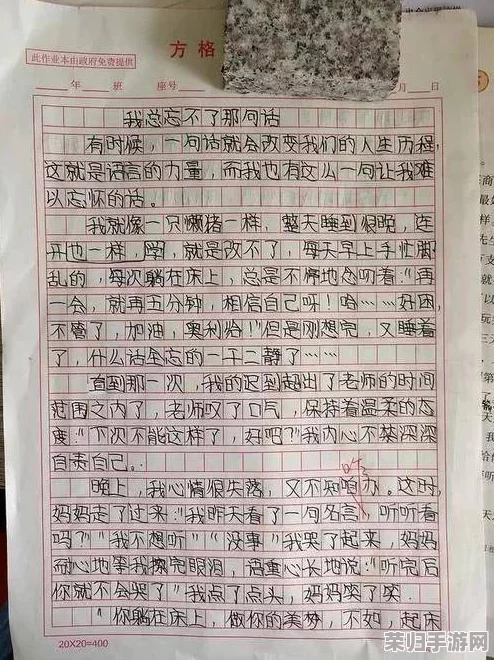 此作业本由政府免费提供
方格
年 班 座号 月 日
我总忘不了那句话
有时候，一句话就会改变我们的人生历程，
这就是语言的力量，而我也有这么一句让我难
以忘怀的话。
我就像一只懒猪一样，整天睡到很晚，连
开也一样，啊，就是改不了，每天早上手忙脚
乱的，每次躺在床上，总是不停地念叨着："再
一会，就再五分钟，相信自己呀！哈……好困，
不管了，加油，奥利给！"但是刚想完，又睡着
了，什么话全忘的一干二静了……
直到那一次，我的迟到超出了老师的时间
范围之内了，老师叹了口气，保持着温柔的态
度："下次不能这样了，好吧？"我内心不禁深深
自责自己。
晚上，我心情很失落，又不知咱办。这时，
咋
妈妈走了过来："我昨天看了一句名言，听听看
吗？""我不想听""没事"我哭了起来，妈妈
耐心地等我擦完眼泪，语重心长地说："听完后
你就不会哭了"我点了点头，妈妈笑了笑。
"你躺在床上，做你的美梦，不如，起床
20X20=400
荣归手游网